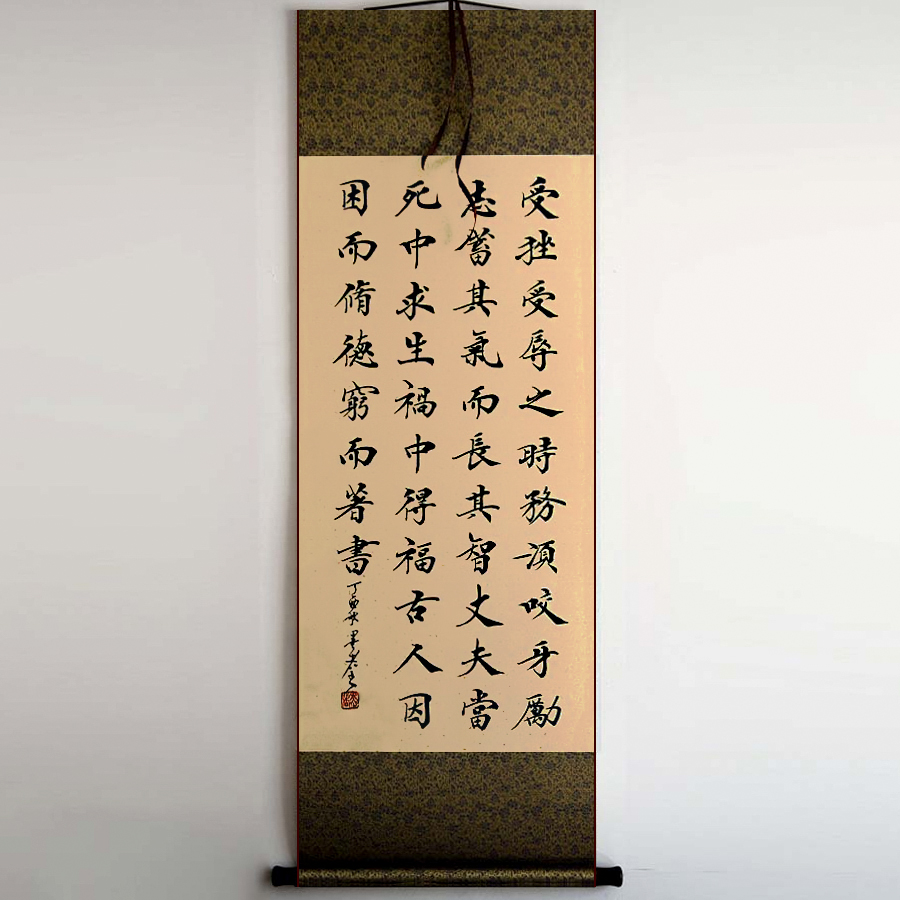 受挫受辱之時務須咬牙勵
志蓄其氣而長其智丈夫當
死中求生禍中得福古人因
困而脩德窮而著書
丁酉秋